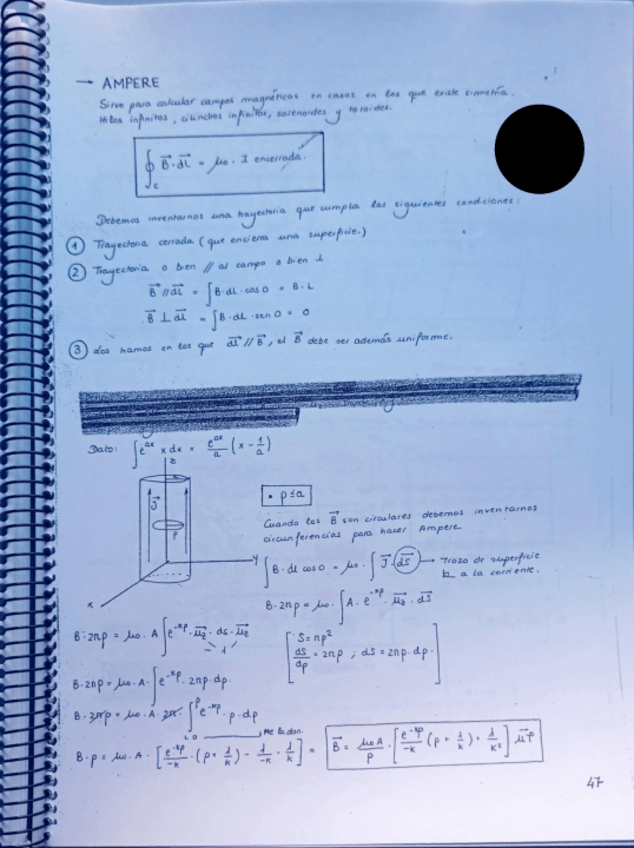 → AMPERE
Sirve para calcular campos magnéticos en casos en los que existe simetría.
Hilos infinitos, cilindros infinitos, solenoides y toroides.
∮c B⃗·dL⃗ = μo · I encerrada.
Debemos inventarnos una trayectoria que cumpla las siguientes condiciones:
① Trayectoria cerrada (que encierra una superficie.)
② Trayectoria o bien // al campo o bien ⊥
B⃗ // dL⃗ = ∫B·dL·cos0 = B·L
B⃗ ⊥ dL⃗ = ∫B·dL·sen0 = 0
③ Los tramos en los que dL⃗ // B⃗, el B⃗ debe ser además uniforme.
Dato: ∫e^ax x dx = e^ax/a (x - 1/a)
z
J⃗
ρ
y
x
• ρ≤a
Cuando los B⃗ son circulares debemos inventarnos
circunferencias para hacer Ampere.
∫B·dl cos0 = μo · ∫J⃗·dS⃗ → Trozo de superficie
⊥ a la corriente.
B·2πρ = μo · ∫A·e^-kρ · u⃗z · dS⃗
B·2πρ = μo · A ∫e^-kρ · u⃗z · ds · u⃗z
1
[S = πρ²
ds/dρ = 2πρ ; dS = 2πρ·dρ.]
B·2πρ = μo·A· ∫e^-kρ · 2πρ·dρ.
B·2πρ = μo·A 2π· ∫₀^ρ e^-kρ · ρ·dρ
Me la dan.
B·ρ = μo·A · [e^-kρ/-k · (ρ + 1/k) - 1/-k · 1/k] = B⃗ = μoA/ρ · [e^-kρ/-k (ρ + 1/k) + 1/k²] u⃗φ
47